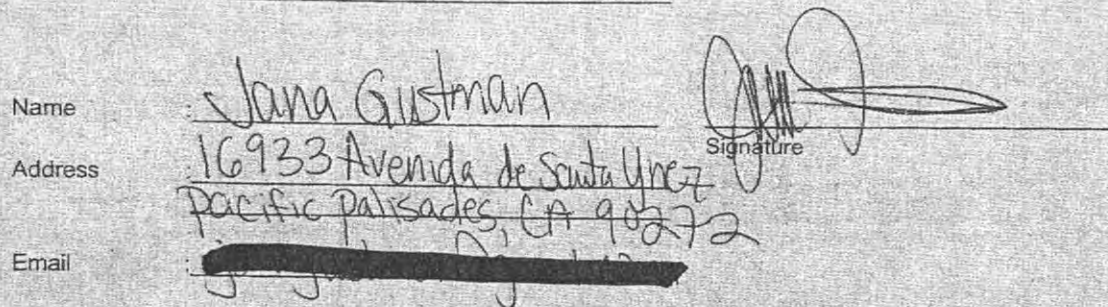 Name : Jana Gustman
Signature
Address : 16933 Avenida de Santa Ynez
Pacific Palisades, CA 90272
Email :